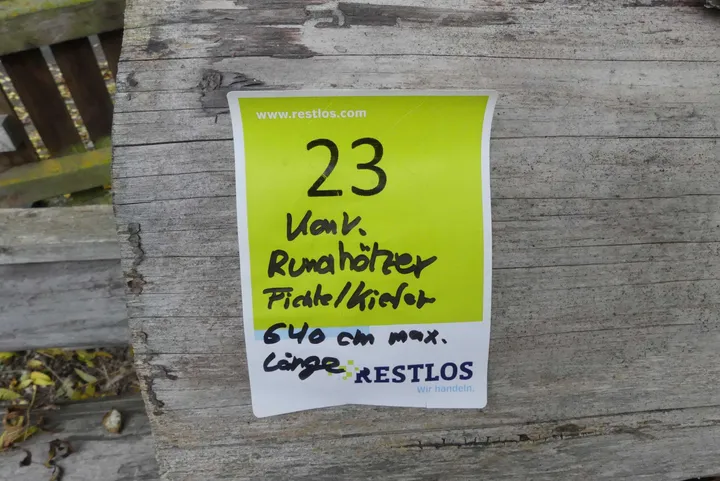 www.restlos.com
23
Konv.
Rundhölzer
Fichte/Kiefer
640 cm max.
Länge
RESTLOS
Wir handeln.